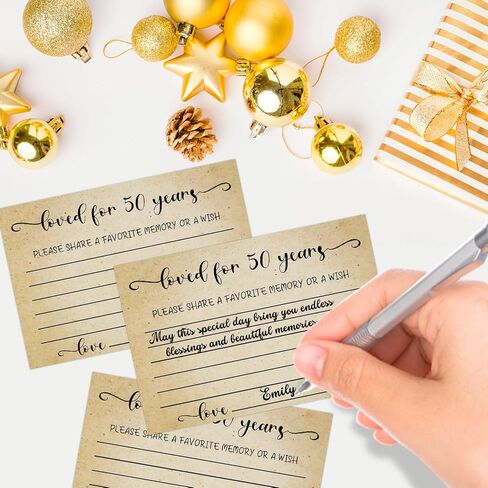 loved for 50 years
PLEASE SHARE A FAVORITE MEMORY OR A WISH
love
loved for 50 years
PLEASE SHARE A FAVORITE MEMORY OR A WISH
May this special day bring you endless
blessings and beautiful memories
Emily
love
loved for 50 years
PLEASE SHARE A FAVORITE MEMORY OR A WISH